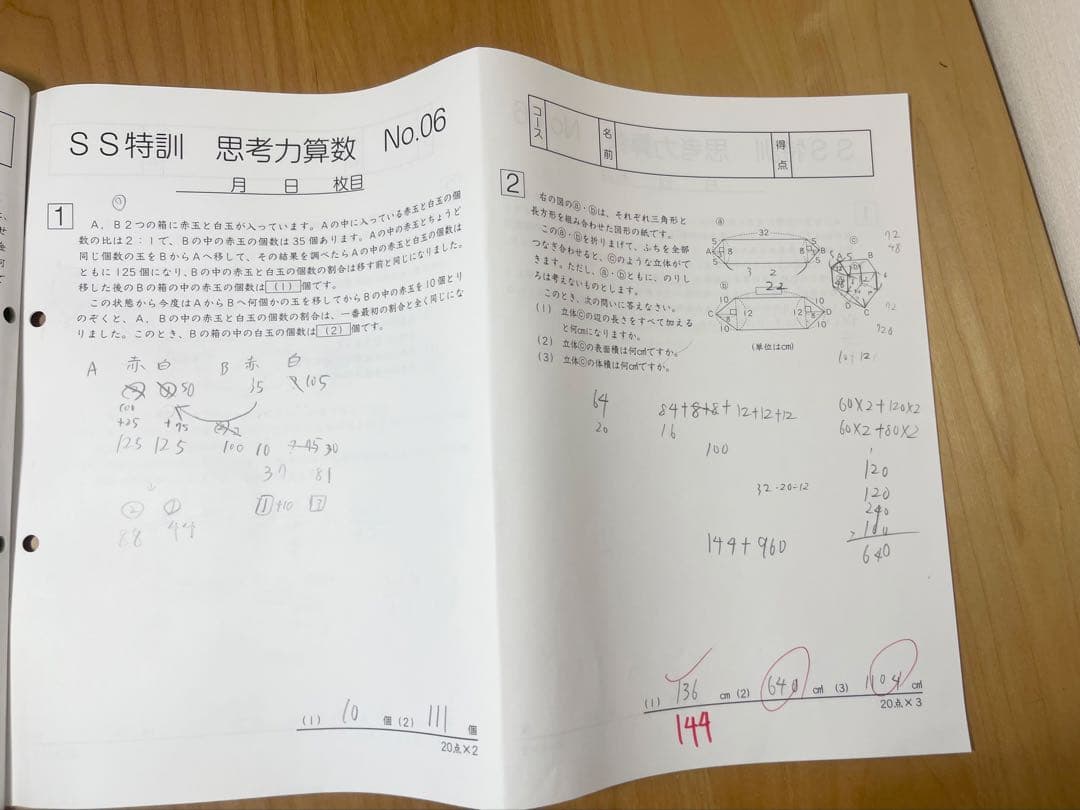 SS特訓 思考力算数 No.06
月 日 枚目
1
A,B2つの箱に赤玉と白玉が入っています。Aの中に入っている赤玉と白玉の個
数の比は2:1で、Bの中の赤玉の個数は35個あります。Aの中の赤玉とちょうど
同じ個数の玉をBからAへ移して、その結果を調べたらAの中の赤玉と白玉の個数は
ともに125個になり、Bの中の赤玉と白玉の個数の割合は移す前と同じになりました。
移した後のBの箱の中の赤玉の個数は(1)個です。
この状態から今度はAからBへ何個かの玉を移してからBの中の赤玉を10個とり
のぞくと、A,Bの中の赤玉と白玉の個数の割合は、一番最初の割合と全く同じにな
りました。このとき、Bの箱の中の白玉の個数は(2)個です。
A 赤 白 B 赤 白
50 35 105
100
+25 +75
125 125 100 10 30
37 81
② ① 1+10 3
88 44
(1) 10 個 (2) 111 個
20点×2
コース 名前 得点
2
右の図のⓐ・ⓑは、それぞれ三角形と
長方形を組み合わせた図形の紙です。
このⓐ・ⓑを折りまげて、ふちを全部
つなぎ合せると、ⓒのような立体がで
きます。ただし、ⓐ・ⓑともに、のりし
ろは考えないものとします。
このとき、次の問いに答えなさい。
(1) 立体ⓒの辺の長さをすべて加える
と何cmになりますか。
(2) 立体ⓒの表面積は何cm²ですか。
(3) 立体ⓒの体積は何cm³ですか。
ⓐ
32
5 5
A 8 8 B
5 5
3 2
ⓑ
22
10 10
C 8 12 12 8 D
10 10
(単位はcm)
ⓒ
A 5 B
D C
92
48
64
20
84+8+8+12+12+12
16
100
60×2+120×2
60×2+80×2
32-20-12
120
120
240
160
640
144+960
(1) 136 cm (2) 640 cm² (3) 1104 cm³
20点×3
144